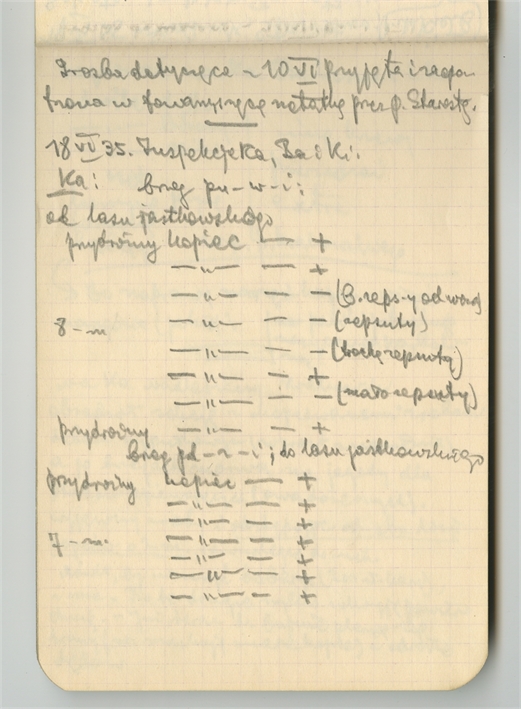 Prośba dotycząca z 10 VI przyjęta i zaopa-
trzona w towarzyszącą notatkę przez p. Starostę.
18 VI 35. Inspekcja, Ba i Ki.
Ka: brzeg pn-w-i:
od lasu jastkowskiego
przydrożny kopiec — +
— „ — — +
— „ — — — (B. zeps-y od wody)
8-m — „ — — — (zepsuty)
— „ — — — (trochę zepsuty)
— „ — — +
— „ — — — (mało zepsuty)
przydrożny — „ — — +
brzeg pd-z-i; do lasu jastkowskiego
przydrożny kopiec — +
— „ — — +
— „ — — +
7-m. — „ — — +
— „ — — +
— „ — — +
— „ — — +